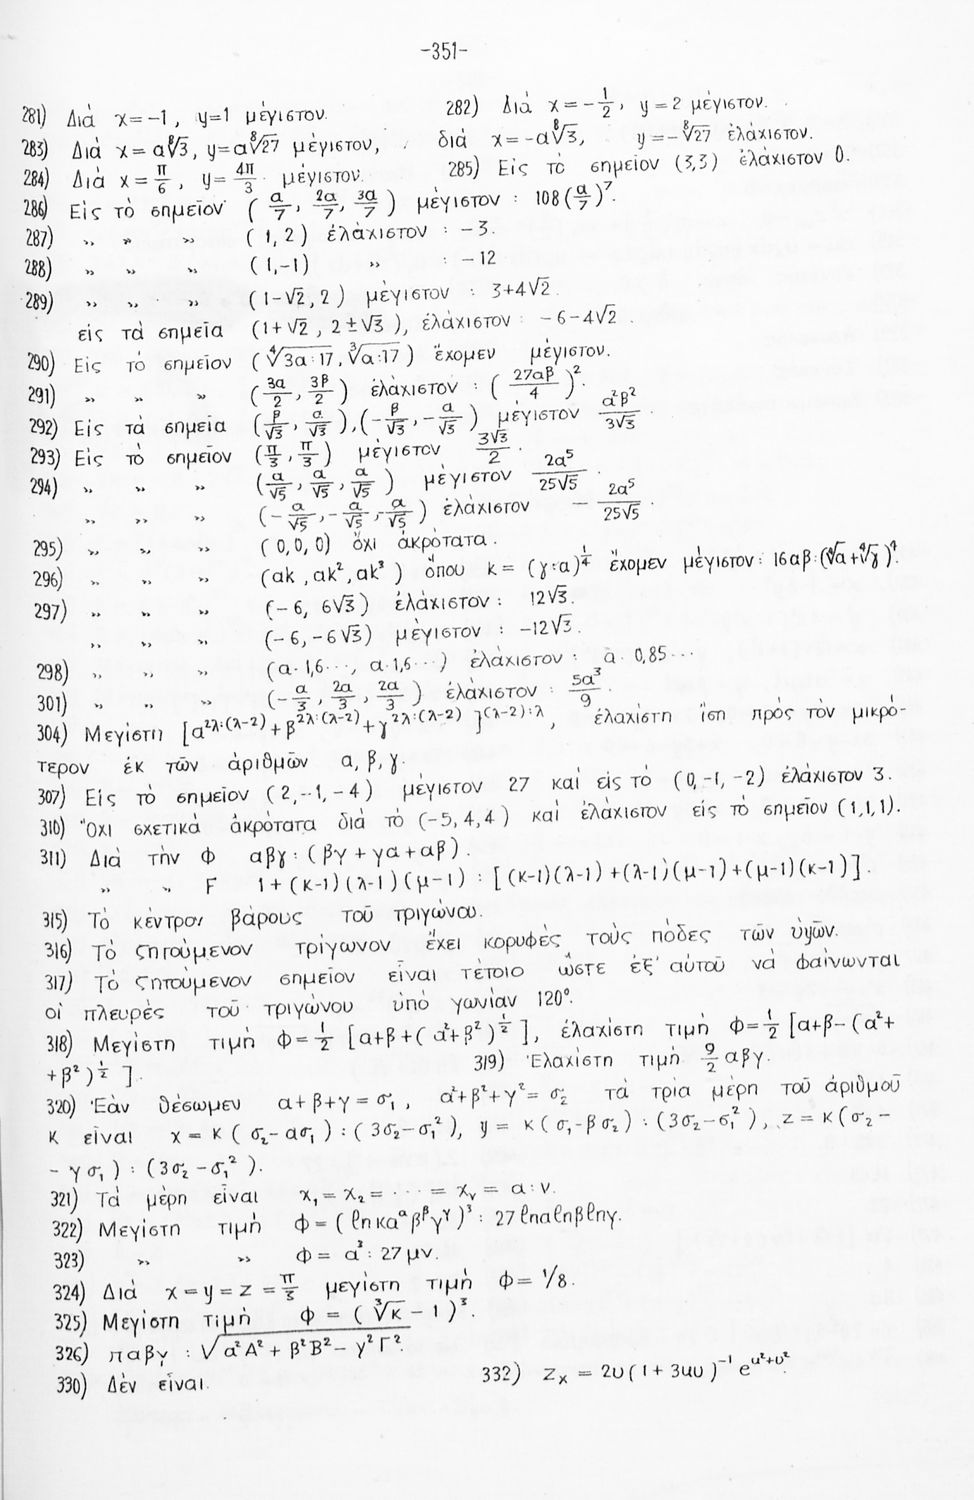 -351-
281) Διά x=-1, y=1 μέγιστον. 282) Διά x=-1/2, y=2 μέγιστον.
283) Διά x=α⁸√3, y=α⁸√27 μέγιστον, διά x=-α⁸√3, y=-⁸√27 ἐλάχιστον.
284) Διά x=π/6, y=4π/3 μέγιστον. 285) Εἰς τό σημεῖον (3,3) ἐλάχιστον 0.
286) Εἰς τό σημεῖον (α/7, 2α/7, 3α/7) μέγιστον : 108(α/7)⁷.
287) " " " (1,2) ἐλάχιστον : -3.
288) " " " (1,-1) " : -12
289) " " " (1-√2,2) μέγιστον : 3+4√2.
εἰς τά σημεῖα (1+√2, 2±√3), ἐλάχιστον : -6-4√2.
290) Εἰς τό σημεῖον (⁴√3α:17, ³√α:17) ἔχομεν μέγιστον.
291) " " " (3α/2, 3β/2) ἐλάχιστον : (27αβ/4)².
292) Εἰς τά σημεῖα (β/√3, α/√3),(-β/√3, -α/√3) μέγιστον α²β²/3√3
293) Εἰς τό σημεῖον (π/3, π/3) μέγιστον 3√3/2.
294) " " " (α/√5, α/√5, α/√5) μέγιστον 2α⁵/25√5.
" " " (-α/√5, -α/√5, -α/√5) ἐλάχιστον -2α⁵/25√5.
295) " " " (0,0,0) ὄχι ἀκρότατα.
296) " " " (αk, αk², αk³) ὅπου k=(γ:α)^1/4 ἔχομεν μέγιστον: 16αβ:(⁴√α+⁴√γ)⁴.
297) " " " (-6, 6√3) ἐλάχιστον : 12√3.
" " " (-6,-6√3) μέγιστον : -12√3.
298) " " " (α·1,6···, α·1,6···) ἐλάχιστον : α·0,85···
301) " " " (-α/3, 2α/3, 2α/3) ἐλάχιστον : 5α³/9
304) Μεγίστη [α^2λ:(λ-2)+β^2λ:(λ-2)+γ^2λ:(λ-2)]^(λ-2):λ, ἐλαχίστη ἴση πρός τόν μικρό-
τερον ἐκ τῶν ἀριθμῶν α, β, γ.
307) Εἰς τό σημεῖον (2,-1,-4) μέγιστον 27 καί εἰς τό (0,-1,-2) ἐλάχιστον 3.
310) Ὄχι σχετικά ἀκρότατα διά τό (-5,4,4) καί ἐλάχιστον εἰς τό σημεῖον (1,1,1).
311) Διά τήν Φ αβγ:(βγ+γα+αβ).
" " F 1+(κ-1)(λ-1)(μ-1) : [(κ-1)(λ-1)+(λ-1)(μ-1)+(μ-1)(κ-1)].
315) Τό κέντρον βάρους τοῦ τριγώνου.
316) Τό ζητούμενον τρίγωνον ἔχει κορυφές τούς πόδες τῶν ὑψῶν.
317) Τό ζητούμενον σημεῖον εἶναι τέτοιο ὥστε ἐξ' αὐτοῦ νά φαίνωνται
οἱ πλευρές τοῦ τριγώνου ὑπό γωνίαν 120°.
318) Μεγίστη τιμή Φ=1/2 [α+β+(α²+β²)^1/2], ἐλαχίστη τιμή Φ=1/2 [α+β-(α²+
+β²)^1/2]. 319) Ἐλαχίστη τιμή 9/2 αβγ.
320) Ἐάν θέσωμεν α+β+γ=σ₁, α²+β²+γ²=σ₂ τά τρία μέρη τοῦ ἀριθμοῦ
κ εἶναι x=κ(σ₂-ασ₁):(3σ₂-σ₁²), y=κ(σ₁-βσ₂):(3σ₂-σ₁²), z=κ(σ₂-
-γσ₁):(3σ₂-σ₁²).
321) Τά μέρη εἶναι x₁=x₂=···=xᵥ=α:ν.
322) Μεγίστη τιμή Φ=(lnκα^αβ^βγ^γ)³:27lnαlnβlnγ.
323) " " Φ=α³:27μν.
324) Διά x=y=z=π/3 μεγίστη τιμή Φ=1/8.
325) Μεγίστη τιμή Φ=(³√κ-1)³.
326) παβγ : √α²Α²+β²Β²-γ²Γ².
330) Δέν εἶναι. 332) zₓ=2υ(1+3uυ)⁻¹e^u²+υ².